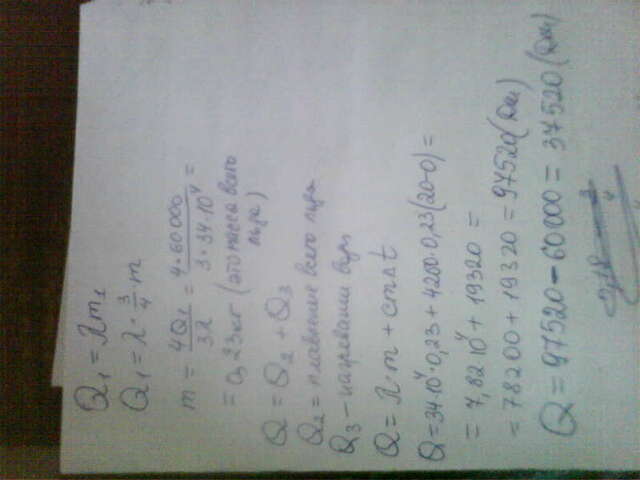 Q₁ = λm₁
Q₁ = λ · 3/4 m
m = 4Q₁/3λ = 4·60000/3·34·10⁴ =
= 0,23кг (это масса всего
льда)
Q = Q₂ + Q₃
Q₂ = плавление всего льда
Q₃ - нагревание воды
Q = λ·m + cmΔt
Q = 34·10⁴·0,23 + 4200·0,23(20-0) =
= 7,82 10⁴ + 19320 =
= 78200 + 19320 = 97520 (Дж)
Q = 97520 - 60000 = 37520 (Дж)